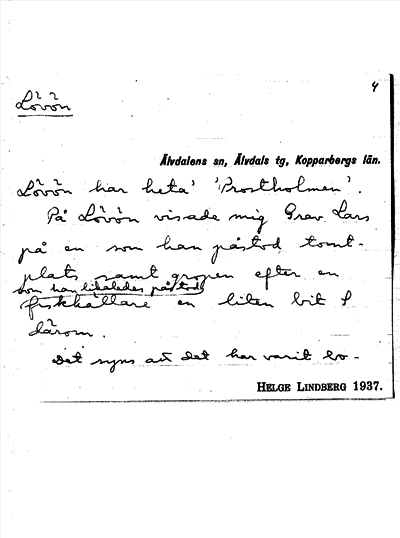 4
Lövön
Älvdalens sn, Älvdals tg, Kopparbergs län.
Lövön har heta' 'Prostholmen'.
På Lövön visade mig Grav Lars
på en som han påstod, tomt-
plats, samt gropen efter en
som han likaledes påstod
fiskkällare en liten bit S
därom.
Det syns att det har varit bo-
HELGE LINDBERG 1937.